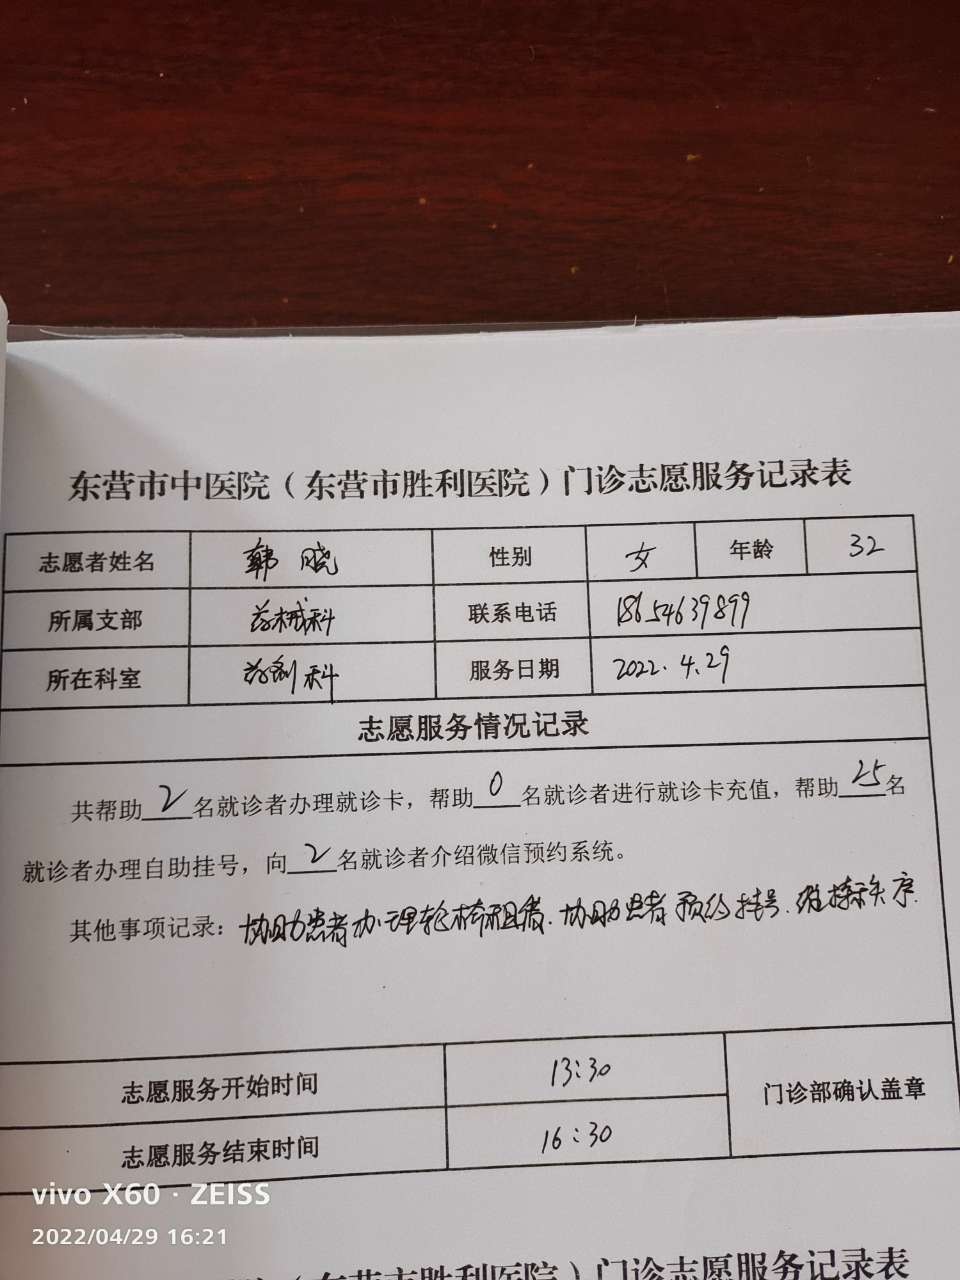 东营市中医院（东营市胜利医院）门诊志愿服务记录表
志愿者姓名 韩晓 性别 女 年龄 32
所属支部 药械科 联系电话 18654639899
所在科室 药剂科 服务日期 2022.4.29
志愿服务情况记录
共帮助2名就诊者办理就诊卡，帮助0名就诊者进行就诊卡充值，帮助25名
就诊者办理自助挂号，向2名就诊者介绍微信预约系统。
其他事项记录：协助患者办理轮椅租借、协助患者预约挂号、维持秩序.
志愿服务开始时间 13:30 门诊部确认盖章
志愿服务结束时间 16:30
vivo X60 · ZEISS
2022/04/29 16:21
（东营市胜利医院）门诊志愿服务记录表